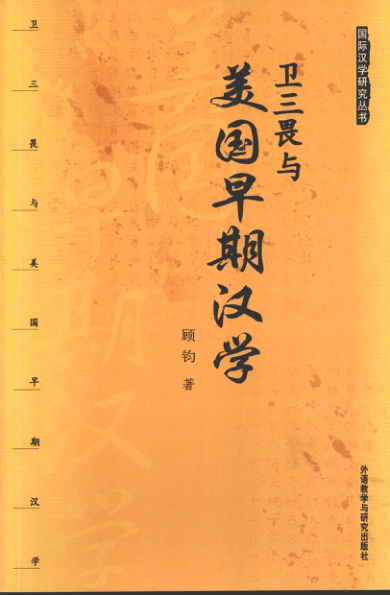 国际汉学研究丛书
卫三畏与
美国早期汉学
顾钧 著
外语教学与研究出版社
卫三畏与美国早期汉学
美国早期汉学